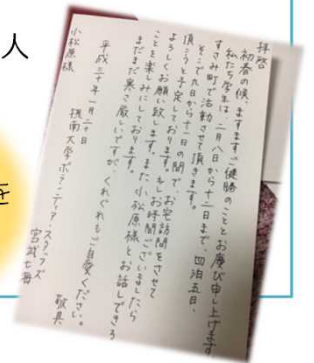 人
を
拝啓
初春の候、ますますご健勝のこととお慶び申し上げます。
私たち学生は、二月八日から十二日まで、四泊五日、
すさみ町で活動させて頂きます。
そこで九日から十一日の間で、お宅訪問をさせて
頂こうと予定しております。もしお時間ございましたら
よろしくお願い致します。また小松原様とお話しできる
ことを楽しみにしております。
まだまだ寒さ厳しいですが、くれぐれもご自愛ください。
敬具
平成三十年一月二十日
摂南大学ボランティアスタッフズ
宮武七海
小松原様